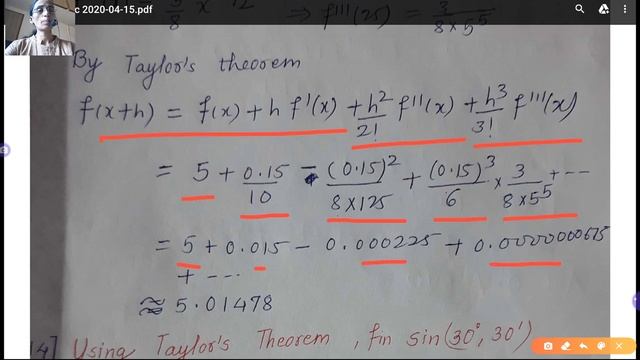 c 2020-04-15.pdf
5/8 × 12 ⇒ f'''(25) = 3/(8×5⁵)
By Taylor's theorem
f(x+h) = f(x) + h f'(x) + h²/2! f''(x) + h³/3! f'''(x)
= 5 + 0.15/10 - (0.15)²/(8×125) + (0.15)³/6 × 3/(8×5⁵) + ---
= 5 + 0.015 - 0.000225 + 0.0000000675
+ ---
≈ 5.01478
14] Using Taylor's Theorem, fin sin(30°, 30')